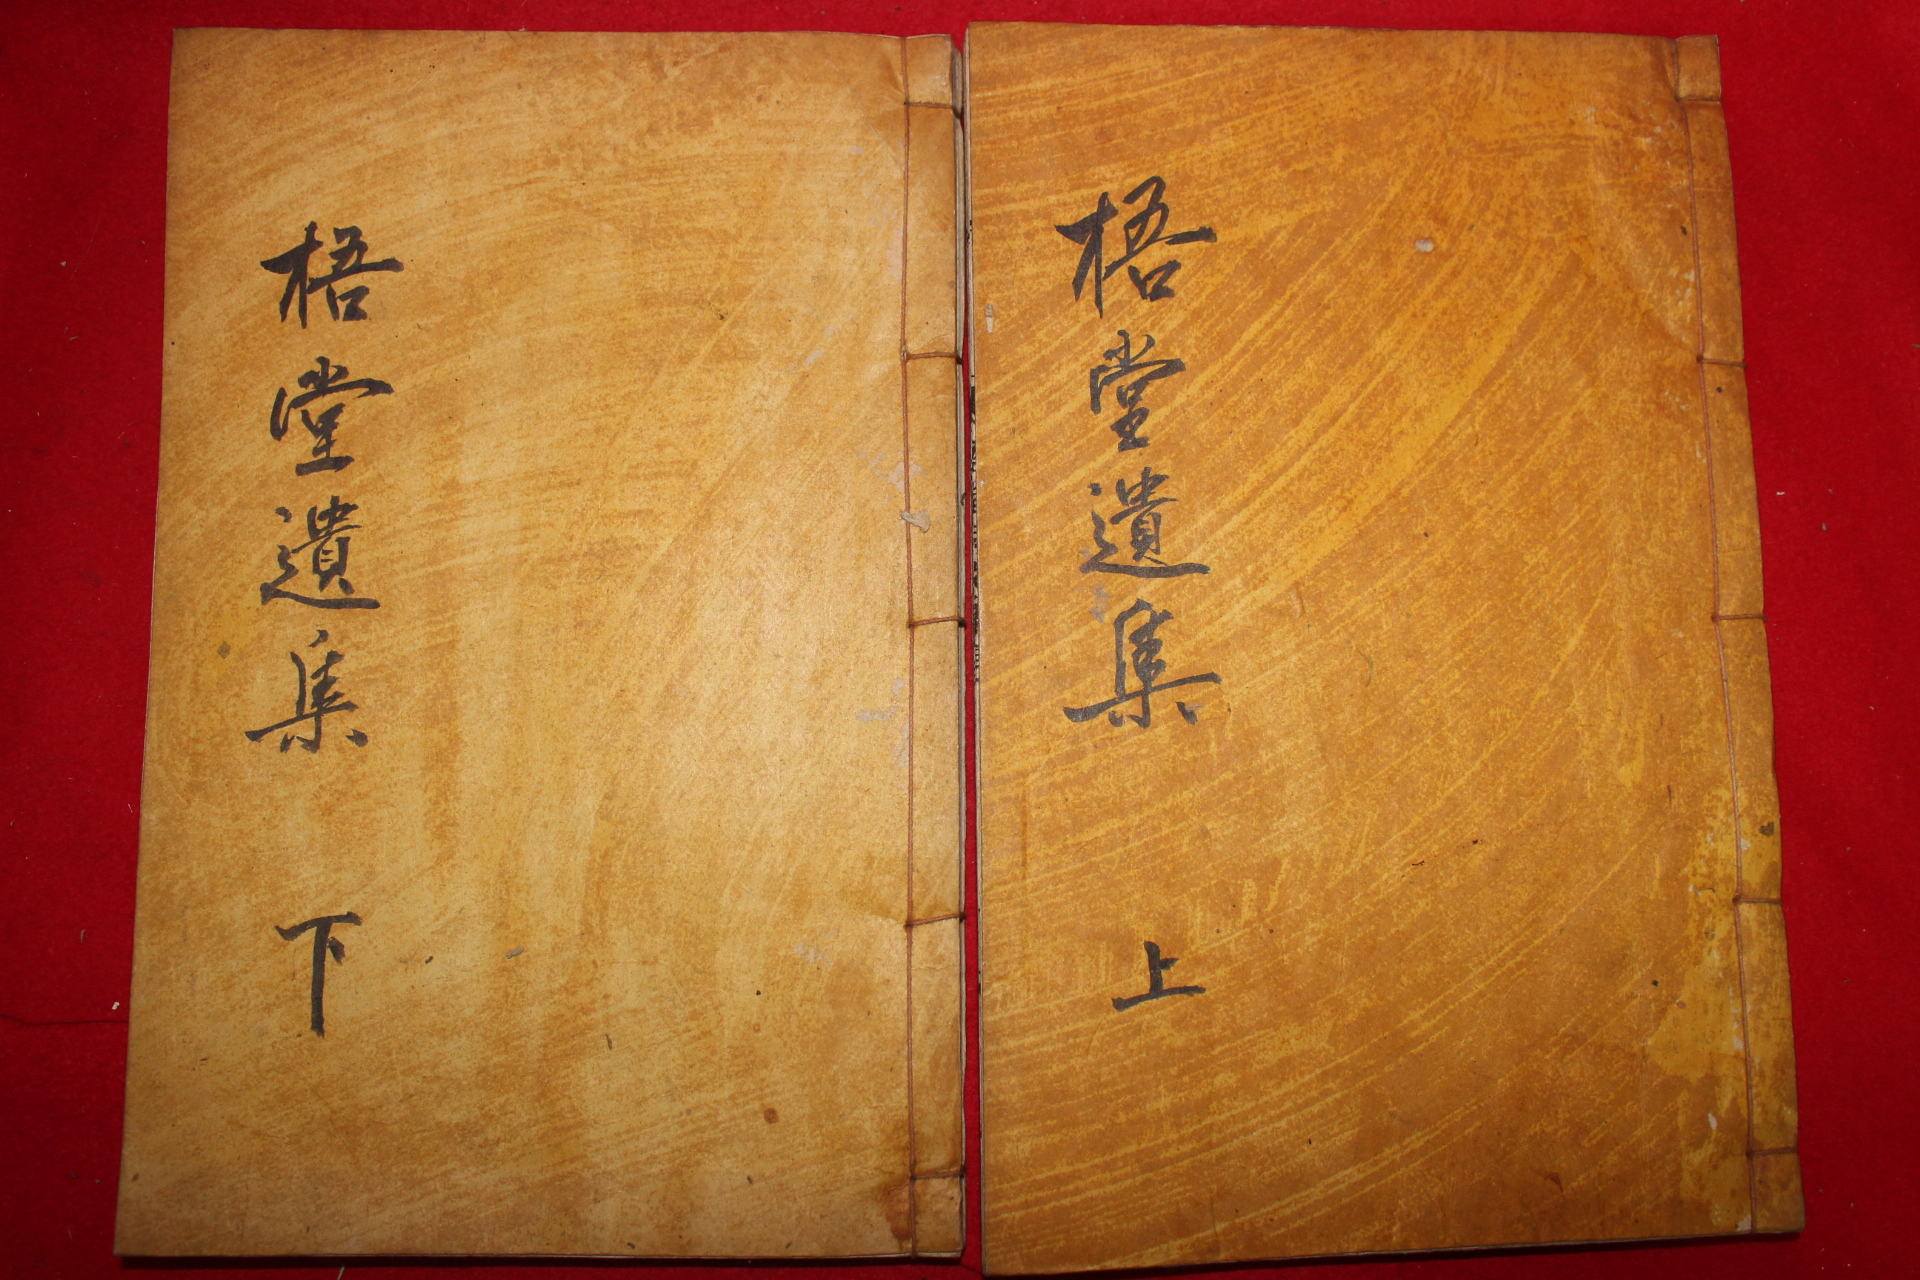 梧堂遺集 上
梧堂遺集 下